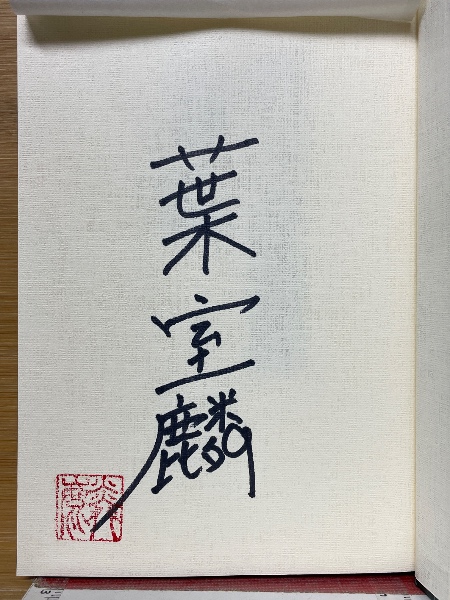 葉室麟